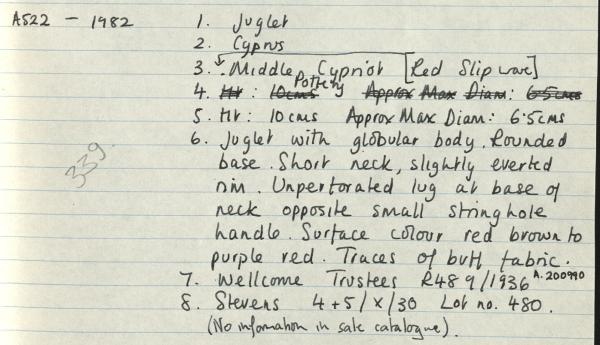 A522 - 1982
1. Juglet
2. Cyprus
3. Middle Cypriot [Red Slip ware]
4. Ht : 10cms Approx Max Diam: 6.5cms
Pottery
5. Ht: 10cms Approx Max Diam: 6.5cms
6. Juglet with globular body. Rounded
base. Short neck, slightly everted
rim. Unperforated lug at base of
neck opposite small stringhole
handle. Surface colour red brown to
purple red. Traces of buff fabric.
7. Wellcome Trustees R489/1936 A.200990
8. Stevens 4+5/X/30 Lot no. 480.
(No information in sale catalogue).
339.